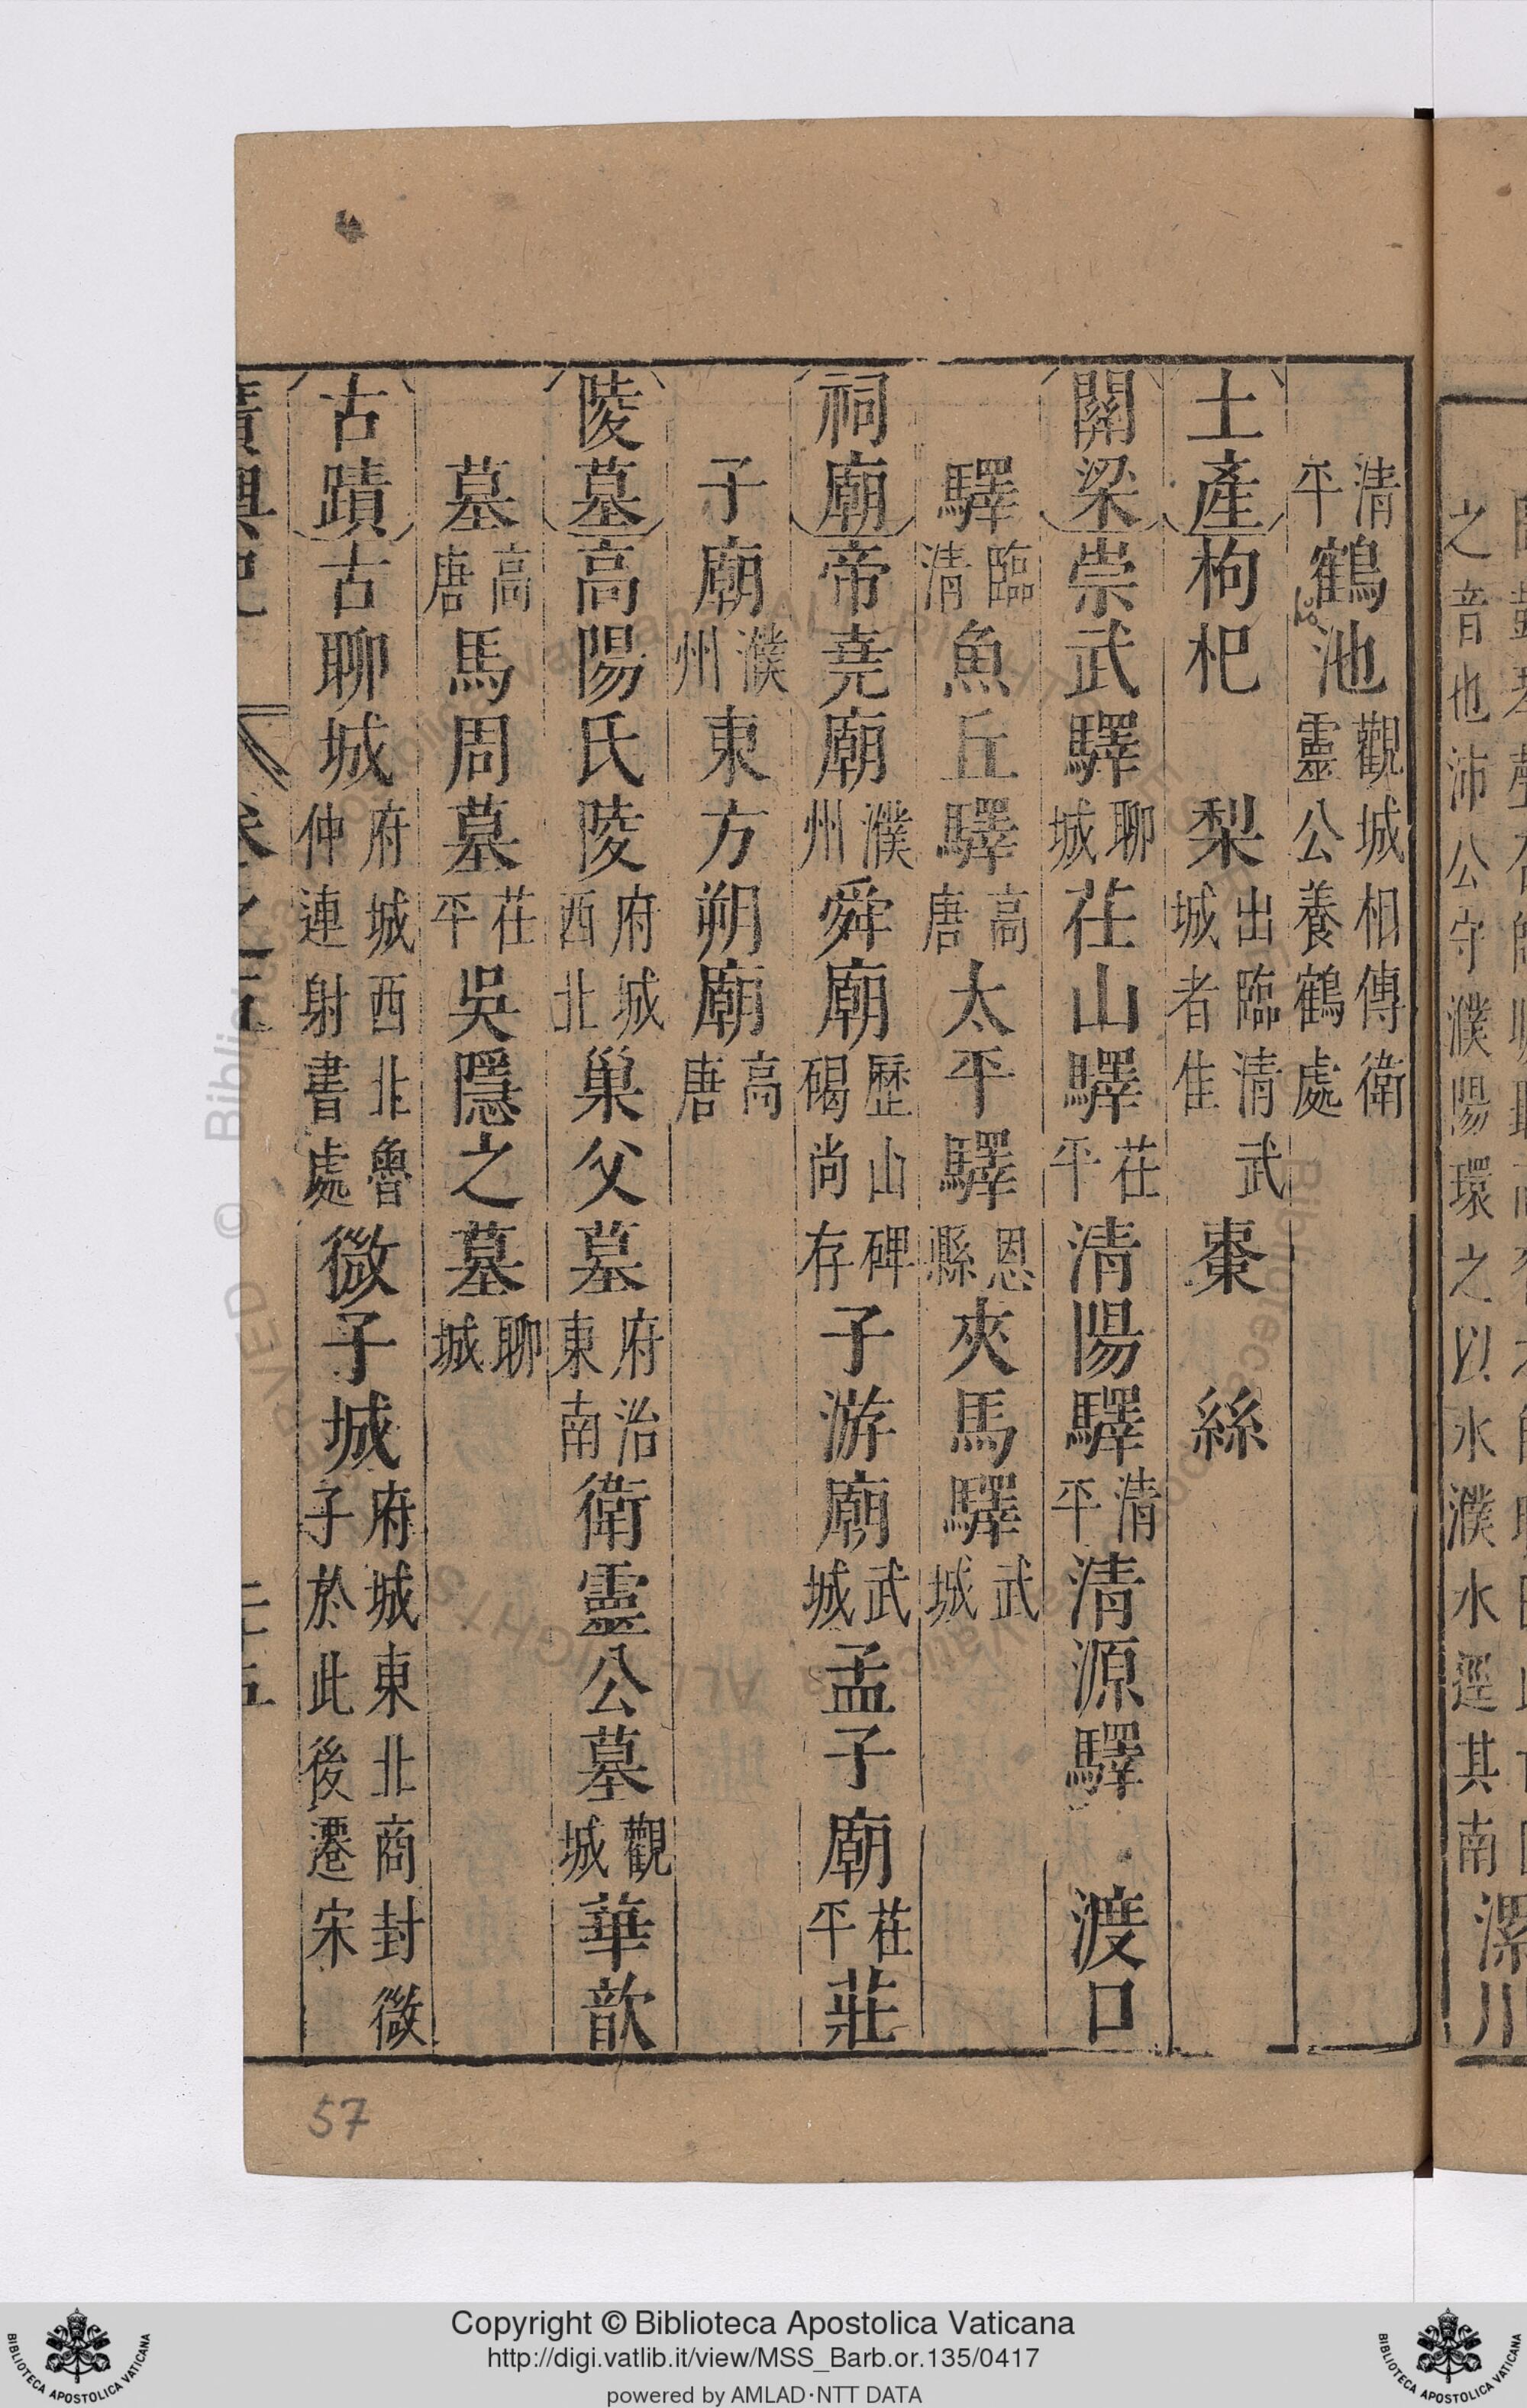 清平鶴池觀城相傳衛靈公養鶴處
土產枸杞 梨出臨清武城者佳 棗 絲
關梁崇武驛聊城茌山驛茌平清陽驛清平清源驛 渡口
驛臨清魚丘驛高唐太平驛恩縣夾馬驛武城
祠廟帝堯廟濮州舜廟歷山碑碣尚存子游廟武城孟子廟茌平莊
子廟濮州東方朔廟高唐
陵墓高陽氏陵府城西北巢父墓府治東南衛靈公墓觀城華歆
墓高唐馬周墓茌平吳隱之墓聊城
古蹟古聊城府城西北魯仲連射書處微子城府城東北商封微子於此後遷宋
之音也沛公守濮陽環之以水濮水逕其南
57
Copyright © Biblioteca Apostolica Vaticana
http://digi.vatlib.it/view/MSS_Barb.or.135/0417
powered by AMLAD·NTT DATA
BIBLIOTECA APOSTOLICA VATICANA
BIBLIOTECA APOSTOLICA VATICANA